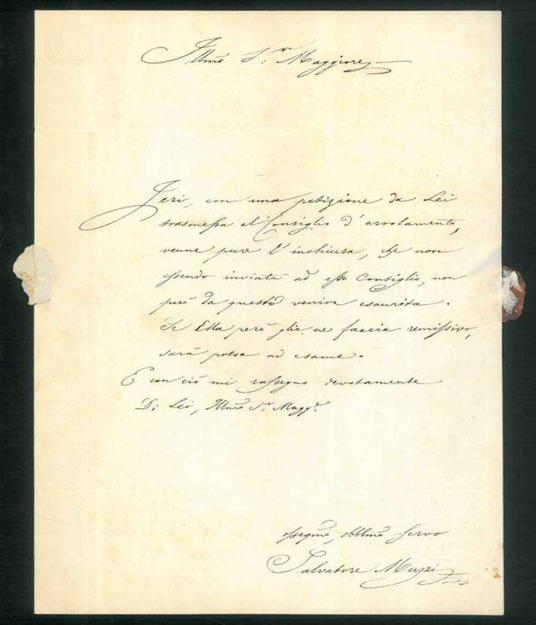 Illmo Sr. Maggiore
Jeri, con una petizione da Lei
trasmessa al Consiglio d'arrolamento,
venne pure l'inchiusa, che non
essendo inviata ad esso Consiglio, non
può da questo venire esaurita.
Se Ella però glie ne faccia remissivo,
sarà posta ad esame.
E con ciò mi rassegno devotamente
Di Lei, Illmo Sr. Magge.
obblmo servo
Salvatore Muzzi